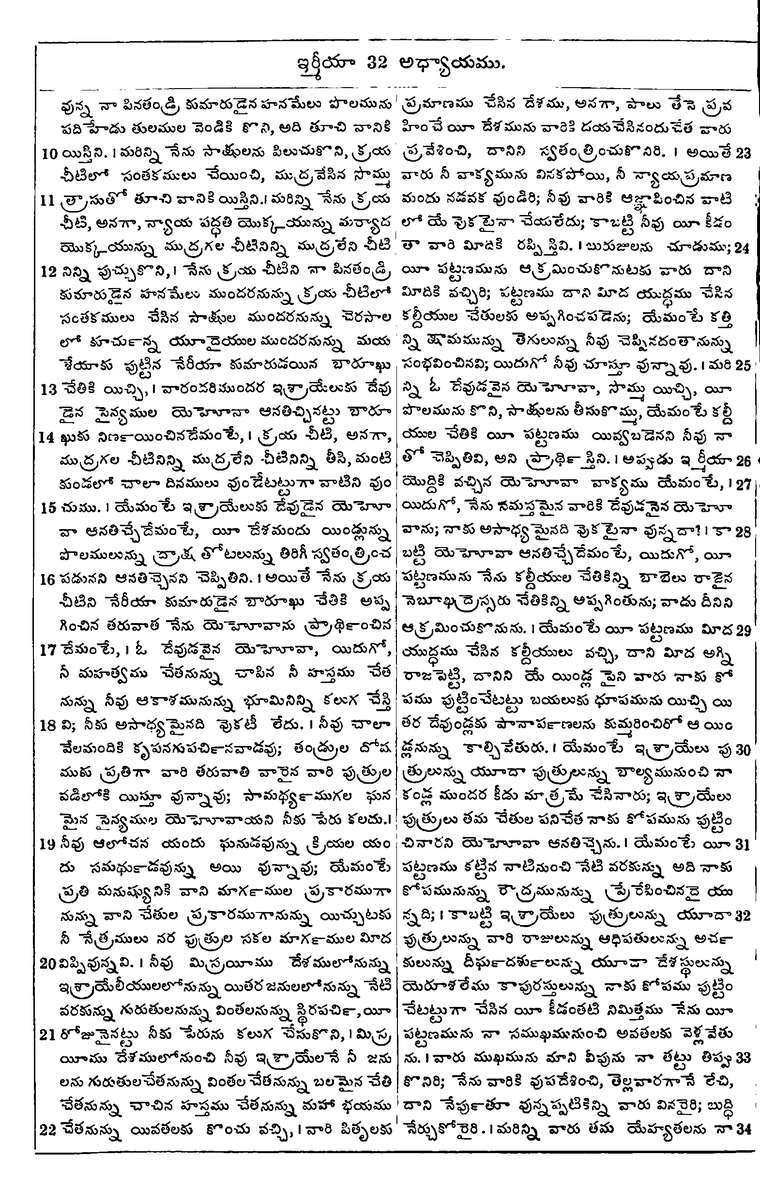 ఇర్మీయా 32 అధ్యాయము.
వున్న నా పినతండ్రి, కుమారుడైన హనమేలు పొలమును
పదిహేడు తులముల వెండికి కొని, అది తూచి వానికి
10 యిస్తిని. । మరిన్ని నేను సాక్షులను పిలుచుకొని, క్రయ
చీటిలో సంతకములు చేయించి, ముద్రవేసిన సొమ్ము
11 త్రాసుతో తూచి వానికి యిస్తిని. । మరిన్ని నేను క్రయ
చీటి, అనగా, న్యాయ పద్ధతి యొక్కయున్ను మర్యాద
యొక్కయున్ను ముద్రగల చీటినిన్ని ముద్రలేని చీటి
12 నిన్ని పుచ్చుకొని, । నేను క్రయ చీటిని నా పినతండ్రి
కుమారుడైన హనమేలు ముందరనున్ను క్రయ చీటిలో
సంతకములు చేసిన సాక్షుల ముందరనున్ను చెరసాల
లో కూచుకాన్న యూదైయుల ముందరనున్ను మయ
శేయాకు పుట్టిన నేరీయా కుమారుడయిన బారూఖు
13 చేతికి యిచ్చి, । వారందరిముందర ఇశ్రాయేలుకు దేవు
డైన సైన్యముల యెహోవా ఆనతిచ్చినట్టు బారూ
14 ఖుకు నిణకాయించినదేమంటే, । క్రయ చీటి, అనగా,
ముద్రగల చీటినిన్ని ముద్రలేని చీటినిన్ని తీసి, మంటి
కుండలో చాలా దినములు వుండేటట్టుగా వాటిని వుం
15 చుము. । యేమంటే ఇశ్రాయేలుకు దేవుడైన యెహో
వా ఆనతిచ్చేదేమంటే, యీ దేశమందు యిండ్లున్ను
పొలములున్ను ద్రాక్ష తోటలున్ను తిరిగీ స్వతంత్రించ
16 పడునని ఆనతిచ్చెనని చెప్పితిని. । అయితే నేను క్రయ
చీటిని నేరీయా కుమారుడైన బారూఖు చేతికి అప్ప
గించిన తరువాత నేను యెహోవాను ప్రాథికాంచిన
17 దేమంటే, । ఓ దేవుడవైన యెహోవా, యిదుగో,
నీ మహత్వము చేతనున్ను చాపిన నీ హస్తము చేత
నున్ను నీవు ఆకాశమునున్ను భూమినిన్ని కలుగ చేస్తి
18 వి; నీకు అసాధ్యమైనది వొకటీ లేదు. । నీవు చాలా
వేలమందికి కృపనగుపచికానవాడవు; తండ్రుల దోష
ముకు ప్రతిగా వారి తరువాతి వారైన వారి పుత్రుల
వడిలోకి యిస్తూ వున్నావు; సామథ్యకాముగల ఘన
మైన సైన్యముల యెహోవాయని నీకు పేరు కలదు. ।
19 నీవు ఆలోచన యందు ఘనుడవున్ను క్రియల యం
దు సమథుకాడవున్ను అయి వున్నావు; యేమంటే
ప్రతి మనుష్యునికి వాని మాగకాముల ప్రకారముగా
నున్ను వాని చేతుల ప్రకారముగానున్ను యిచ్చుటకు
నీ నేత్రములు నర పుత్రుల సకల మాగకాముల మీద
20 విప్పివున్నవి. । నీవు మిస్రయిము దేశములోనున్ను
ఇశ్రాయేలీయులలోనున్ను యితర జనులలోనున్ను నేటి
వరకున్ను గురుతులనున్ను వింతలనున్ను స్థిరపచికా, యీ
21 రోజునైనట్టు నీకు పేరును కలుగ చేసుకొని, । మిస్ర
యీము దేశములోనుంచి నీవు ఇశ్రాయేలనే నీ జను
లను గురుతులచేతనున్ను వింతల చేతనున్ను బలమైన చేతి
చేతనున్ను చాచిన హస్తము చేతనున్ను మహా భయము
22 చేతనున్ను యివతలకు కొంచు వచ్చి, । వారి పితృలకు
ప్రమాణము చేసిన దేశము, అనగా, పాలు తేనె ప్రవ
హించే యీ దేశమును వారికి దయచేసినందుచేత వారు
ప్రవేశించి, దానిని స్వతంత్రించుకొనిరి. । అయితే 23
వారు నీ వాక్యమును వినకపోయి, నీ న్యాయప్రమాణ
మందు నడవక వుండిరి; నీవు వారికి ఆజ్ఞాపించిన వాటి
లో యే వొకటైనా చేయలేదు; కాబట్టి నీవు యీ కీడం
తా వారి మీదికి రప్పిస్తివి. । బురుజులను చూడుము; 24
యీ పట్టణమును ఆక్రమించుకొనుటకు వారు దాని
మీదికి వచ్చిరి; పట్టణము దాని మీద యుద్ధము చేసిన
కల్దీయుల చేతులకు అప్పగించపడెను; యేమంటే కత్తి
న్ని క్షామమున్ను తెగులున్ను నీవు చెప్పినదంతానున్ను
సంభవించినవి; యిదుగో నీవు చూస్తూ వున్నావు. । మరి 25
న్ని ఓ దేవుడవైన యెహోవా, సొమ్ము యిచ్చి, యీ
పొలమును కొని, సాక్షులను తీసుకొమ్ము, యేమంటే కల్దీ
యుల చేతికి యీ పట్టణము యివ్వబడెనని నీవు నా
తో చెప్పితివి, అని ప్రాథికాస్తిని. । అప్పుడు ఇర్మీయా 26
యొద్దికి వచ్చిన యెహోవా వాక్యము యేమంటే, । 27
యిదుగో, నేను సమస్తమైన వారికి దేవుడనైన యెహో
వాను; నాకు అసాధ్యమైనది వొకటైనా వున్నదా? । కా 28
బట్టి యెహోవా ఆనతిచ్చేదేమంటే, యిదుగో, యీ
పట్టణమును నేను కల్దీయుల చేతికిన్ని బాబెలు రాజైన
నెబూఖద్రెస్సరు చేతికిన్ని అప్పగింతును; వాడు దీనిని
ఆక్రమించుకొనును. । యేమంటే యీ పట్టణము మీద 29
యుద్ధము చేసిన కల్దీయులు వచ్చి, దాని మీద అగ్ని
రాజపెట్టి, దానిని యే యిండ్ల పైని వారు నాకు కో
పము పుట్టించేటట్టు బయలుకు ధూపమును యిచ్చి యి
తర దేవుండ్లకు పానాపకాణలను కుమ్మరించిరో ఆ యిం
డ్లనున్ను కాల్చివేతురు. । యేమంటే ఇశ్రాయేలు పు 30
త్రులున్ను యూదా పుత్రులున్ను బాల్యమునుంచి నా
కండ్ల ముందర కీడు మాత్రమే చేసినారు; ఇశ్రాయేలు
పుత్రులు తమ చేతుల పనిచేత నాకు కోపమును పుట్టిం
చినారని యెహోవా ఆనతిచ్చెను. । యేమంటే యీ 31
పట్టణము కట్టిన నాటినుంచి నేటి వరకున్ను అది నాకు
కోపమునున్ను రౌద్రమునున్ను ప్రేరేపించినదై యు
న్నది; । కాబట్టి ఇశ్రాయేలు పుత్రులున్ను యూదా 32
పుత్రులున్ను వారి రాజులున్ను అధిపతులున్ను అచకా
కులున్ను దీఘకాదశుకాలున్ను యూదా దేశస్థులున్ను
యెరూశలేము కాపురస్తులున్ను నాకు కోపము పుట్టిం
చేటట్టుగా చేసిన యీ కీడంతటి నిమిత్తము నేను యీ
పట్టణమును నా సముఖమునుంచి అవతలకు వెళ్లవేతు
ను. । వారు ముఖమును మాని వీపును నా తట్టు తిప్పు 33
కొనిరి; నేను వారికి వుపదేశించి, తెల్లవారగానే లేచి,
దాని నేపుకాతూ వున్నప్పటికిన్ని వారు వినరైరి; బుద్ధి
నేర్చుకోరైరి. । మరిన్ని వారు తమ యేహ్యతలను నా 34